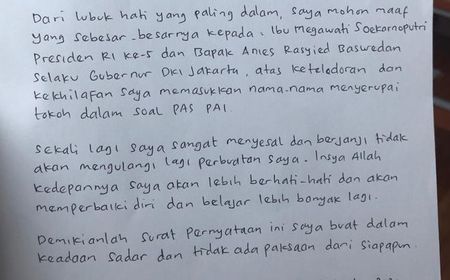 Dari lubuk hati yang paling dalam, saya mohon maaf
yang sebesar-besarnya kepada, Ibu Megawati Soekarnoputri
Presiden RI ke-5 dan Bapak Anies Rasyied Baswedan
selaku Gubernur DKI Jakarta, atas keteledoran dan
kekhilafan saya memasukkan nama-nama menyerupai
tokoh dalam soal PAS PAI.
Sekali lagi saya sangat menyesal dan berjanji tidak
akan mengulangi lagi perbuatan saya. Insya Allah
kedepannya saya akan lebih berhati-hati dan akan
memperbaiki diri dan belajar lebih banyak lagi.
Demikianlah surat pernyataan ini saya buat dalam
keadaan sadar dan tidak ada paksaan dari siapapun.